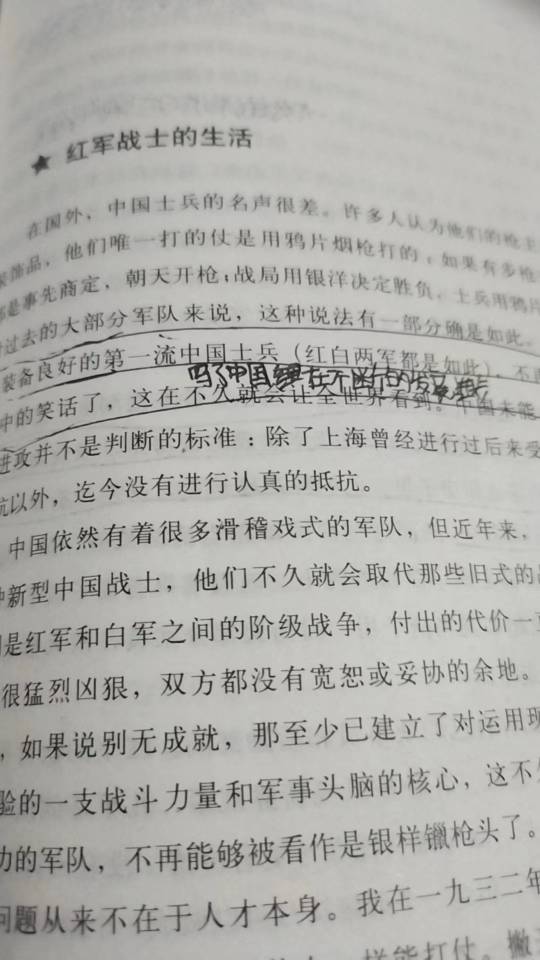 ★ 红军战士的生活
在国外，中国士兵的名声很差。许多人认为他们的枪主
饰品，他们唯一打的仗是用鸦片烟枪打的；如果有多枪
都是事先商定，朝天开枪；战局用银洋决定胜负，士兵用鸦片
过去的大部分军队来说，这种说法有一部分确是如此。
装备良好的第一流中国士兵（红白两军都是如此），不再
中国 在不断的发
中的笑话了，这在不久就会让全世界看到。中国未能
进攻并不是判断的标准：除了上海曾经进行过后来受
抗以外，迄今没有进行认真的抵抗。
中国依然有着很多滑稽戏式的军队，但近年来，
种新型中国战士，他们不久就会取代那些旧式的战
是红军和白军之间的阶级战争，付出的代价一直
很猛烈凶狠，双方都没有宽恕或妥协的余地。
，如果说别无成就，那至少已建立了对运用现
验的一支战斗力量和军事头脑的核心，这不久
的军队，不再能够被看作是银样镴枪头了。
问题从来不在于人才本身。我在一九三二年
样能打仗。撇开